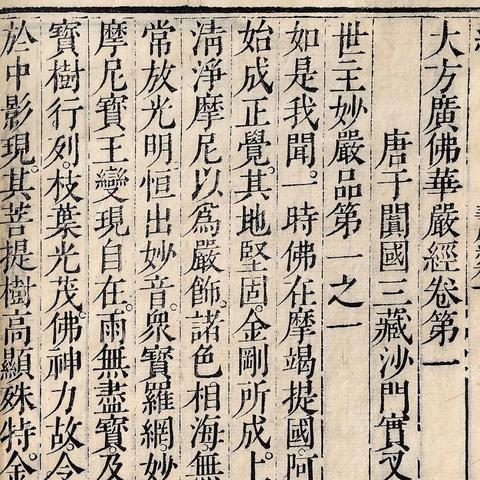 大方廣佛華嚴經卷第一
唐于闐國三藏沙門實叉
世主妙嚴品第一之一
如是我聞。一時佛在摩竭提國。阿
始成正覺。其地堅固。金剛所成。上
清淨摩尼以為嚴飾。諸色相海。無
常放光明恒出妙音。眾寶羅網。妙
摩尼寶王變現自在。雨無盡寶。及
寶樹行列。枝葉光茂。佛神力故。令
於中影現。其菩提樹高顯殊特。金